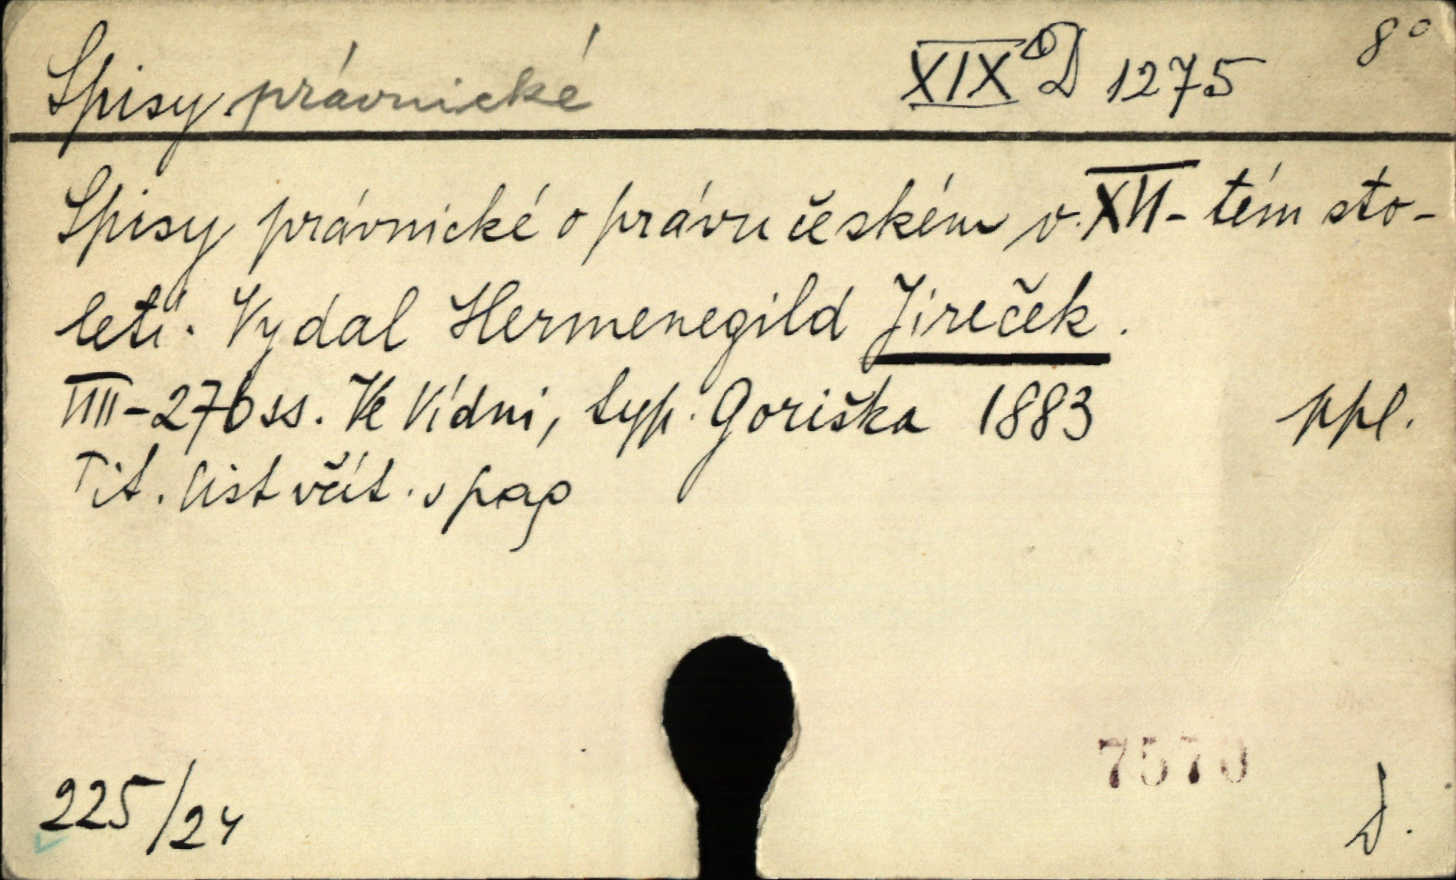 Spisy právnické XIX D 1275 8°
Spisy právnické o právu českém v XVI-tém sto-
letí. Vydal Hermenegild Jireček.
VIII-276 ss. Ve Vídni, typ. Goriška 1883 ppl.
Tit. list včít. v pag
7570
225/24 D.